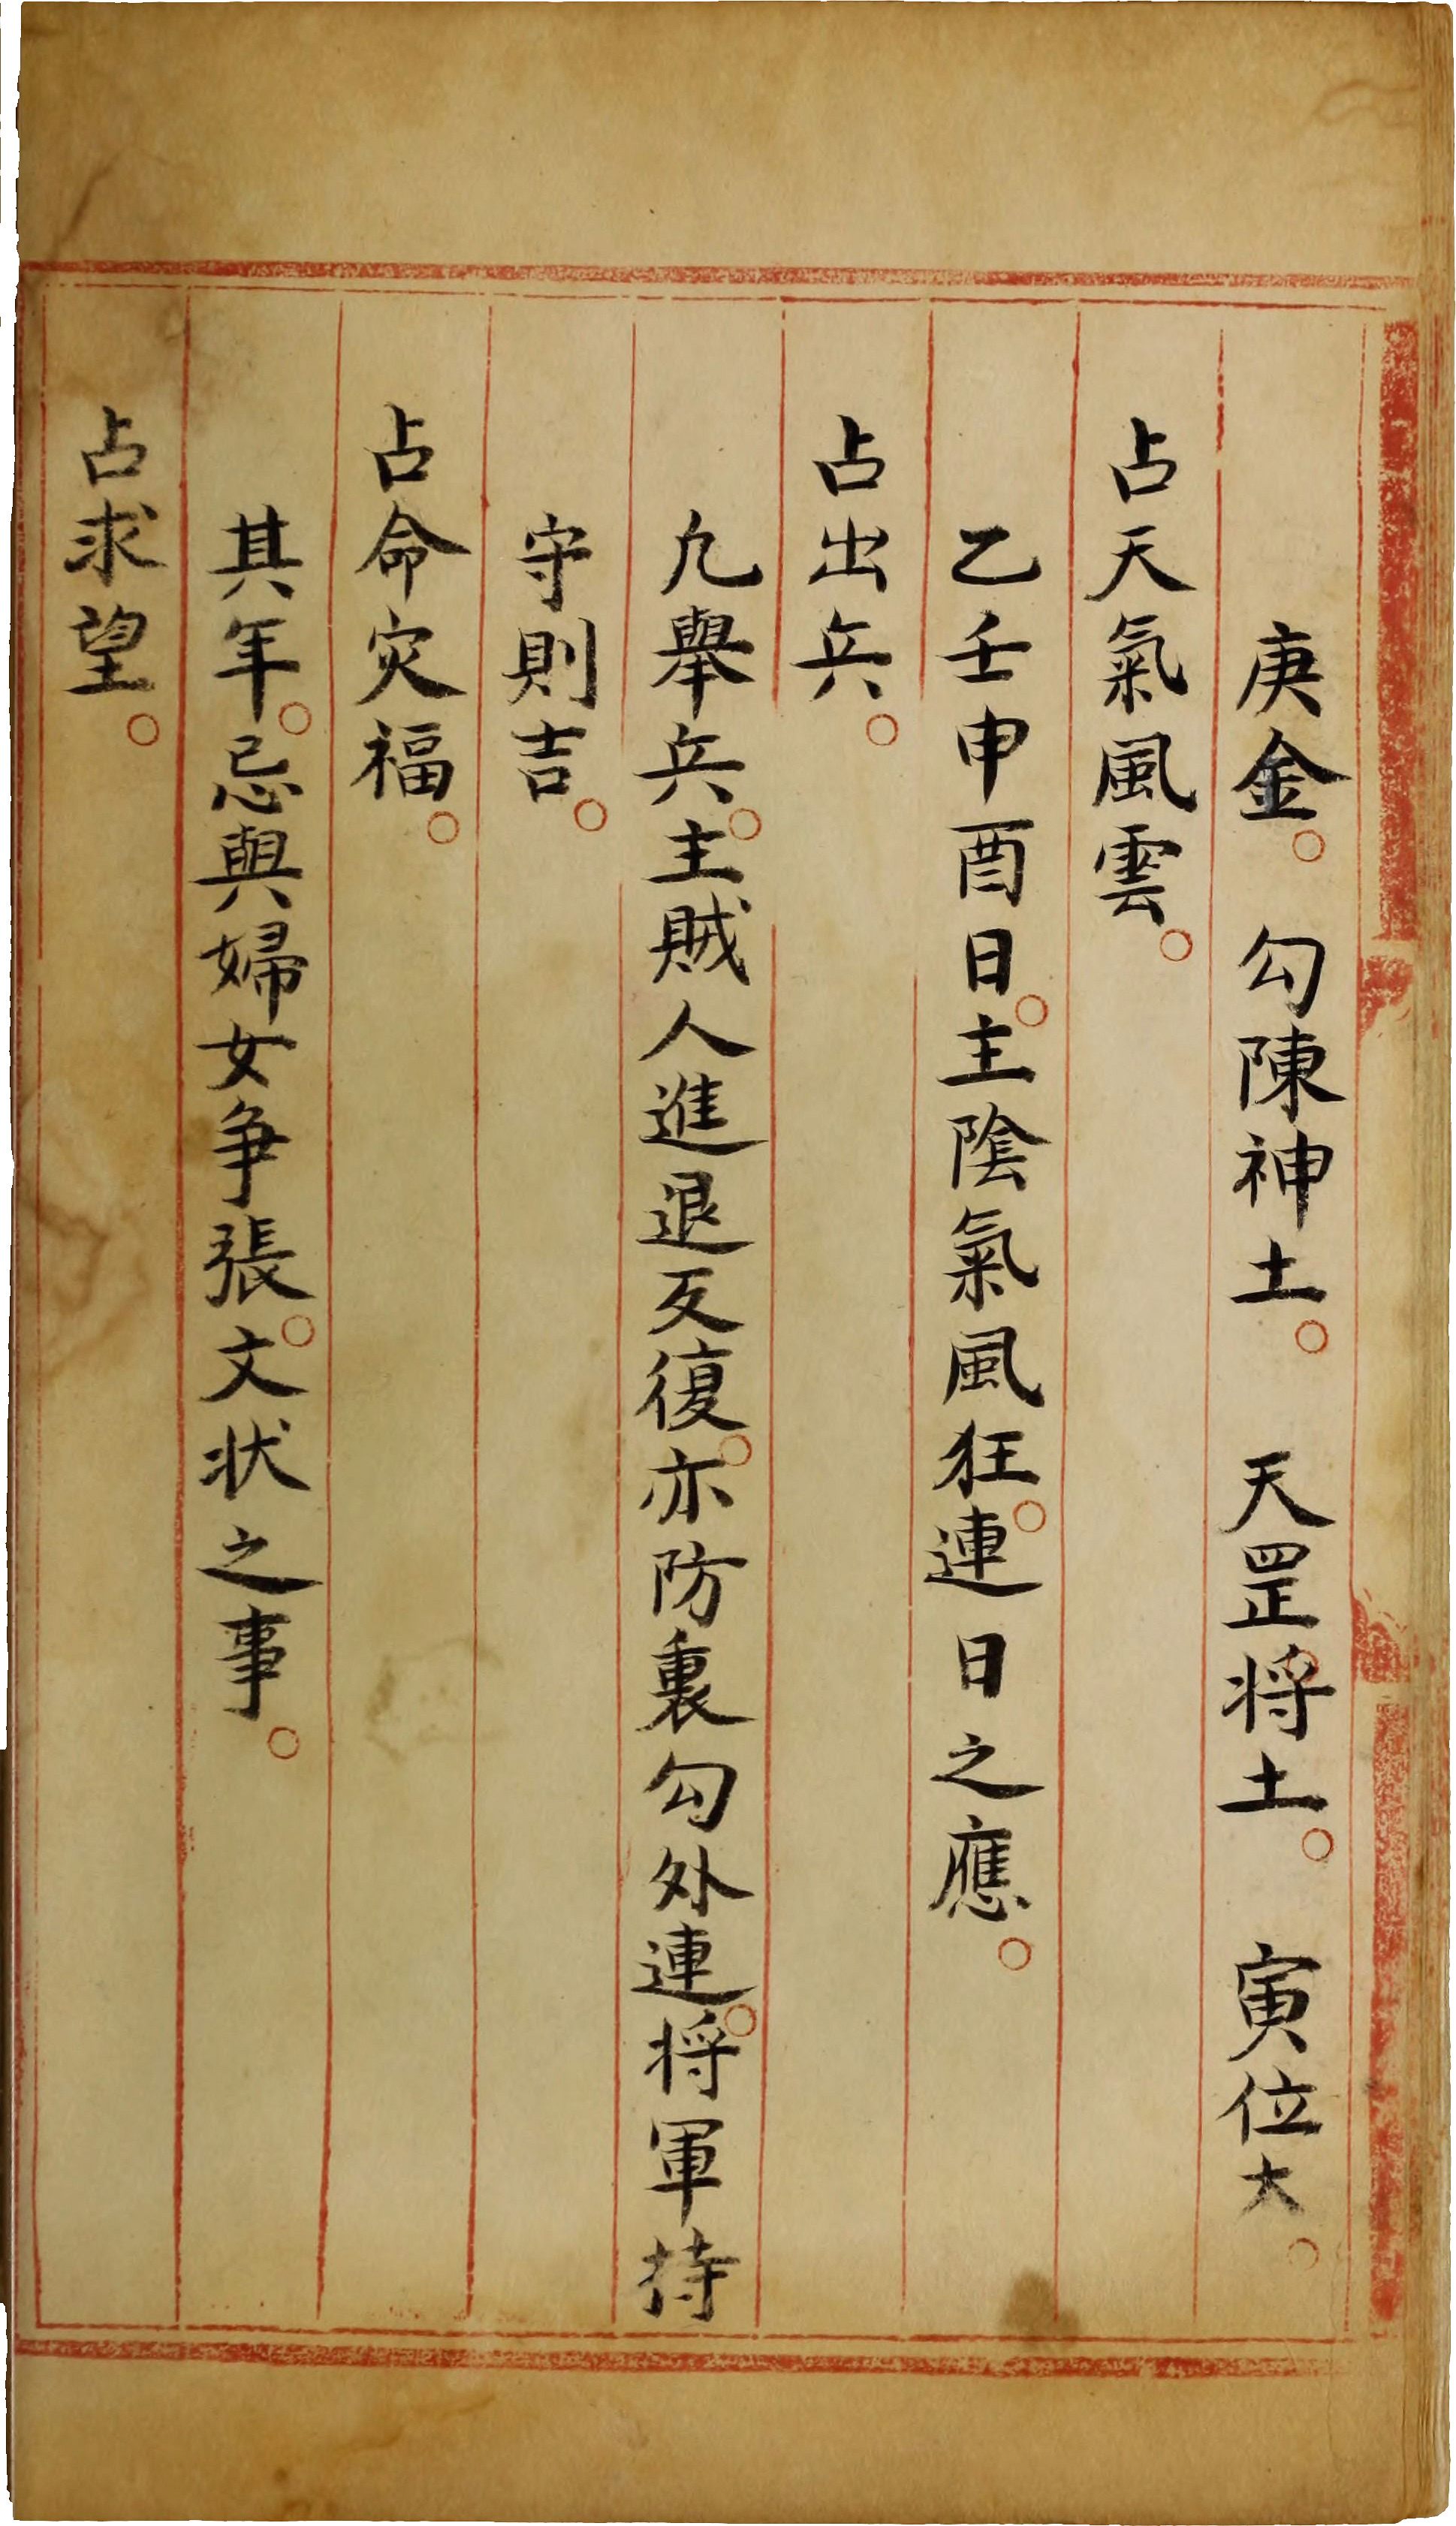 庚金。勾陳神土。天罡将土。寅位大。
占天氣風雲。
乙壬申酉日。主陰氣風狂。連日之應。
占出兵。
凢舉兵。主賊人進退反復。亦防裏勾外連。将軍持
守則吉。
占命灾福。
其年。忌與婦女争張。文状之事。
占求望。